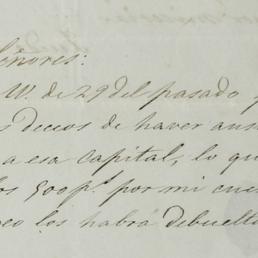 Señores:
V. de 29 del pasado
s deceos de haver
a esa capital, lo qu
los 500 p.s por mi cuen
eo los habrá debuelto